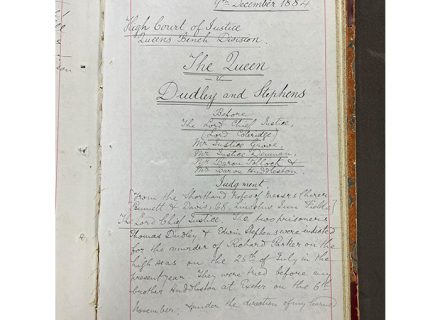 9th December 1884
High Court of Justice
Queens Bench Division
The Queen
v
Dudley and Stephens
Before
The Lord Chief Justice,
(Lord Coleridge)
Mr Justice Grove,
Mr Justice Denman,
Mr Baron Pollock &
Mr Baron Huddleston
Judgment
[From the Shorthand Notes of Messrs Cherer,
Bennett & Davis, 68, Lincolns Inn Fields]
The Lord Chief Justice The two prisoners
Thomas Dudley & Edwin Stephens were indicted
for the murder of Richard Parker on the
high seas on the 25th of July in the
present year. They were tried before my
brother Huddleston at Exeter on the 6th
November; under the direction of my learned